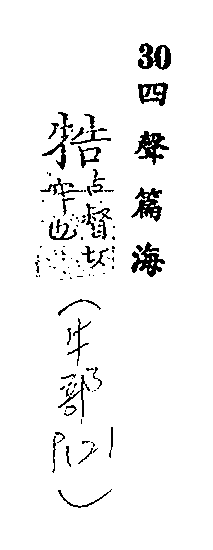 30四聲篇海
牿古督切牢也
(牛部P121)